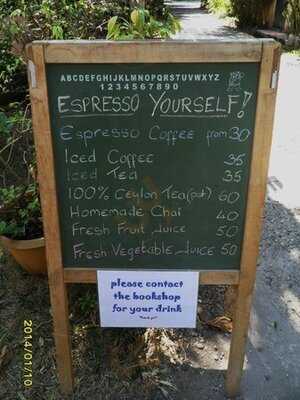 ABCDEFGHIJKLMNOPQRSTUVWXYZ
1234567890
ESPRESSO YOURSELF!
Espresso Coffee from 30
Iced Coffee 35
Iced Tea 35
100% Ceylon Tea (pot) 60
Homemade Chai 40
Fresh Fruit Juice 50
Fresh Vegetable Juice 50
please contact
the bookshop
for your drink
2014/01/10